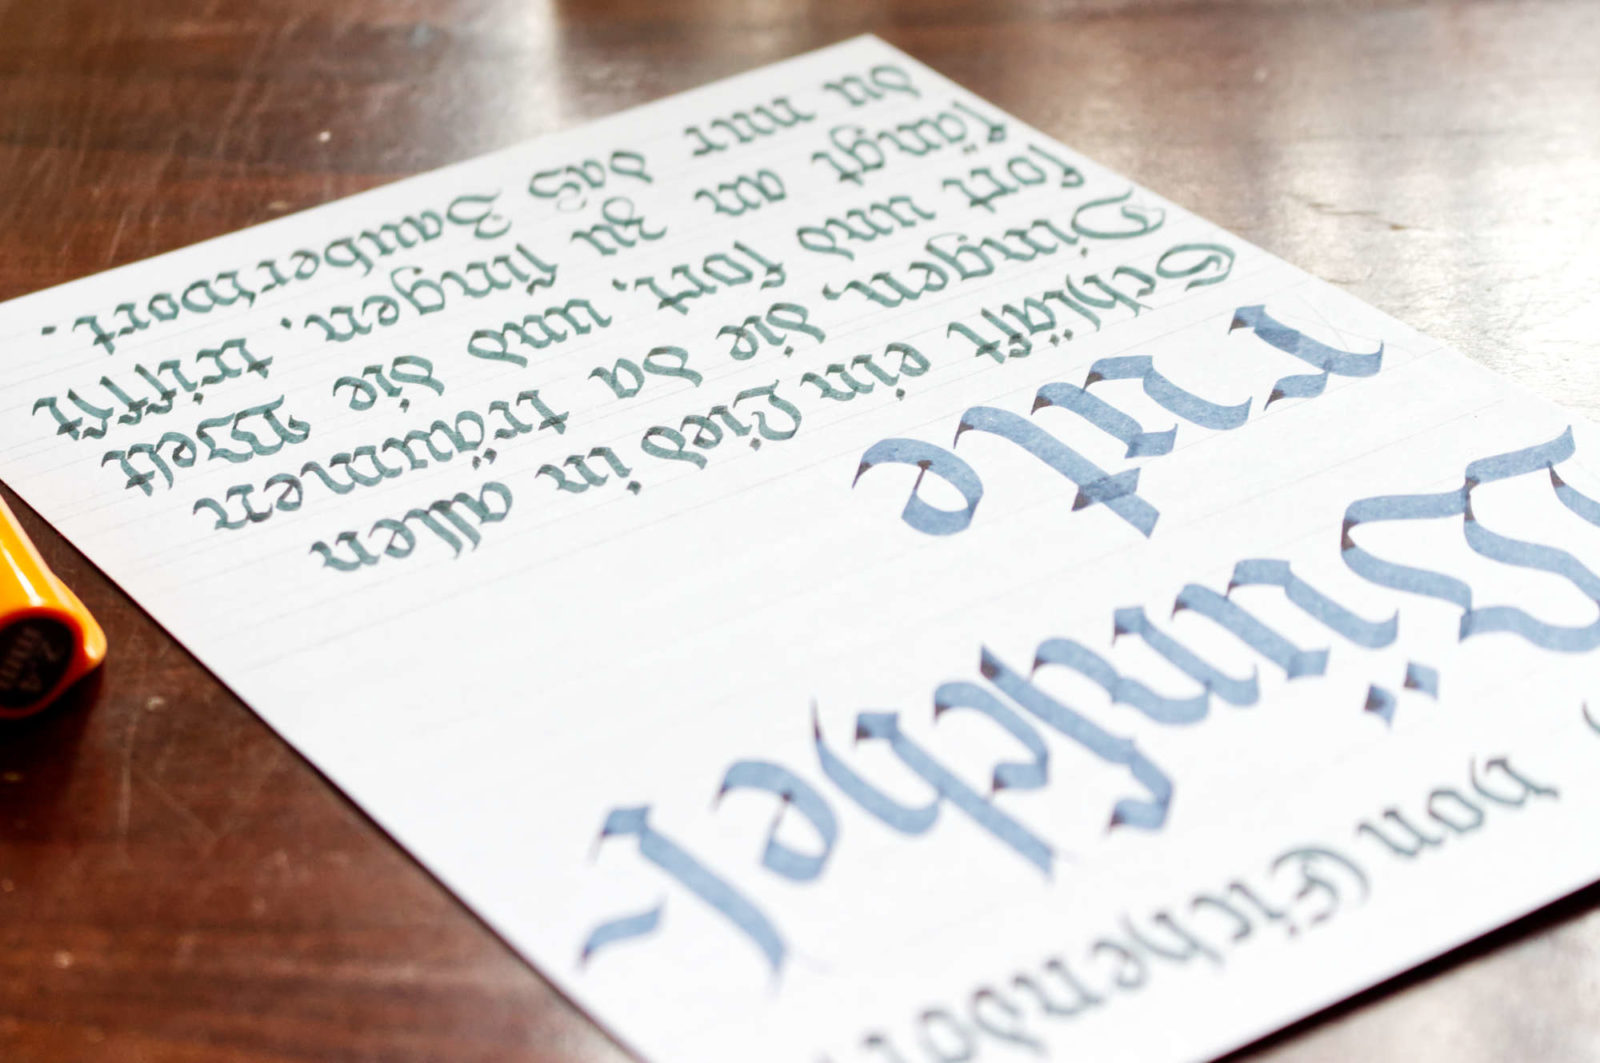 von Eichendor
Wünſchel-
rute
Schläft ein Lied in allen
Dingen, die da träumen
fort und fort, und die Welt
fängt an zu ſingen, triffſt
du nur das Zauberwort.